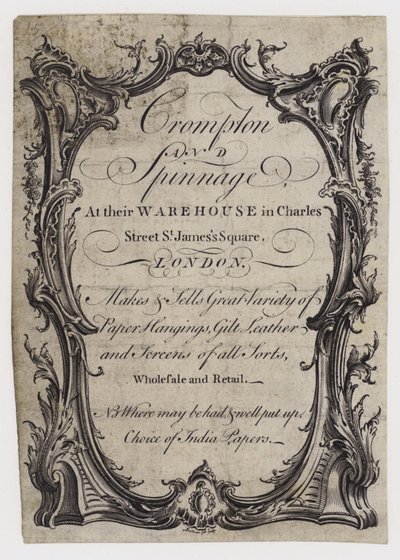 Crompton
AND
Spinnage,
At their WAREHOUSE in Charles
Street St. James's Square,
LONDON.
Makes & Sells Great Variety of
Paper Hangings, Gilt Leather
and Screens of all Sorts,
Wholesale and Retail.
NB Where may be had, & well put up,
Choice of India Papers.